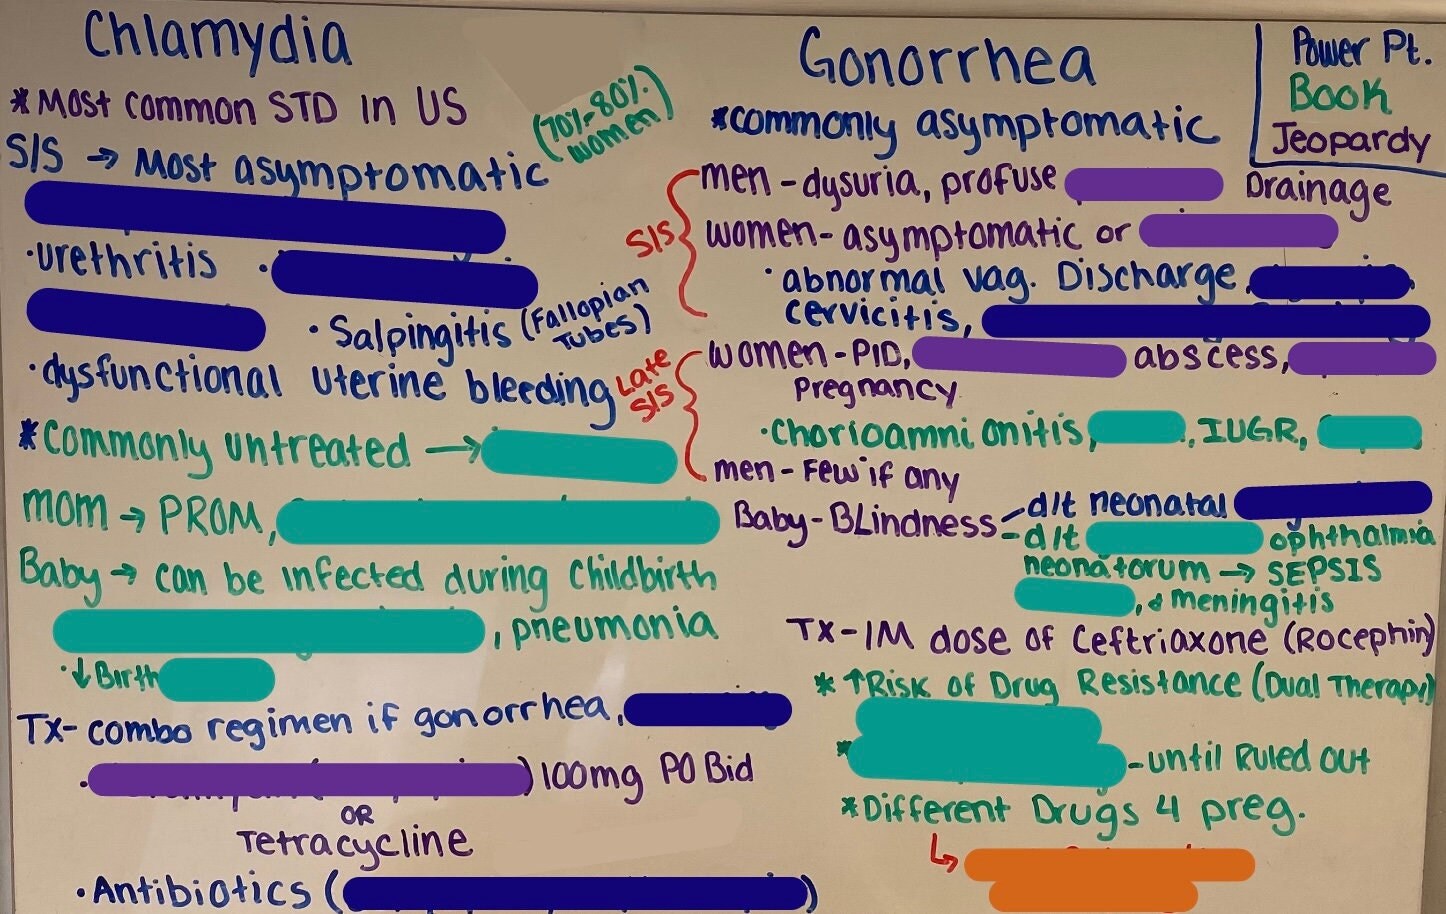 Chlamydia
*Most common STD in US
(70%-80% women)
S/S → Most asymptomatic
·urethritis ·
· Salpingitis (Fallopian Tubes)
·dysfunctional uterine bleeding
*Commonly untreated →
mom → PROM,
Baby → can be infected during Childbirth
, pneumonia
·↓ Birth
Tx- combo regimen if gonorrhea,
· ) 100mg PO Bid
OR
Tetracycline
·Antibiotics ( )
Power Pt.
Book
Jeopardy
Gonorrhea
*commonly asymptomatic
S/S
men - dysuria, profuse Drainage
women- asymptomatic or
·abnormal vag. Discharge,
cervicitis,
Late S/S
women - PID, abscess,
Pregnancy
·Chorioamnionitis, , IUGR,
men - Few if any
Baby - BLindness - d/t neonatal
- d/t ophthalmia
neonatorum → SEPSIS
, & meningitis
Tx - IM dose of Ceftriaxone (Rocephin)
* ↑Risk of Drug Resistance (Dual Therapy)
* -until Ruled out
*Different Drugs 4 preg.
↳